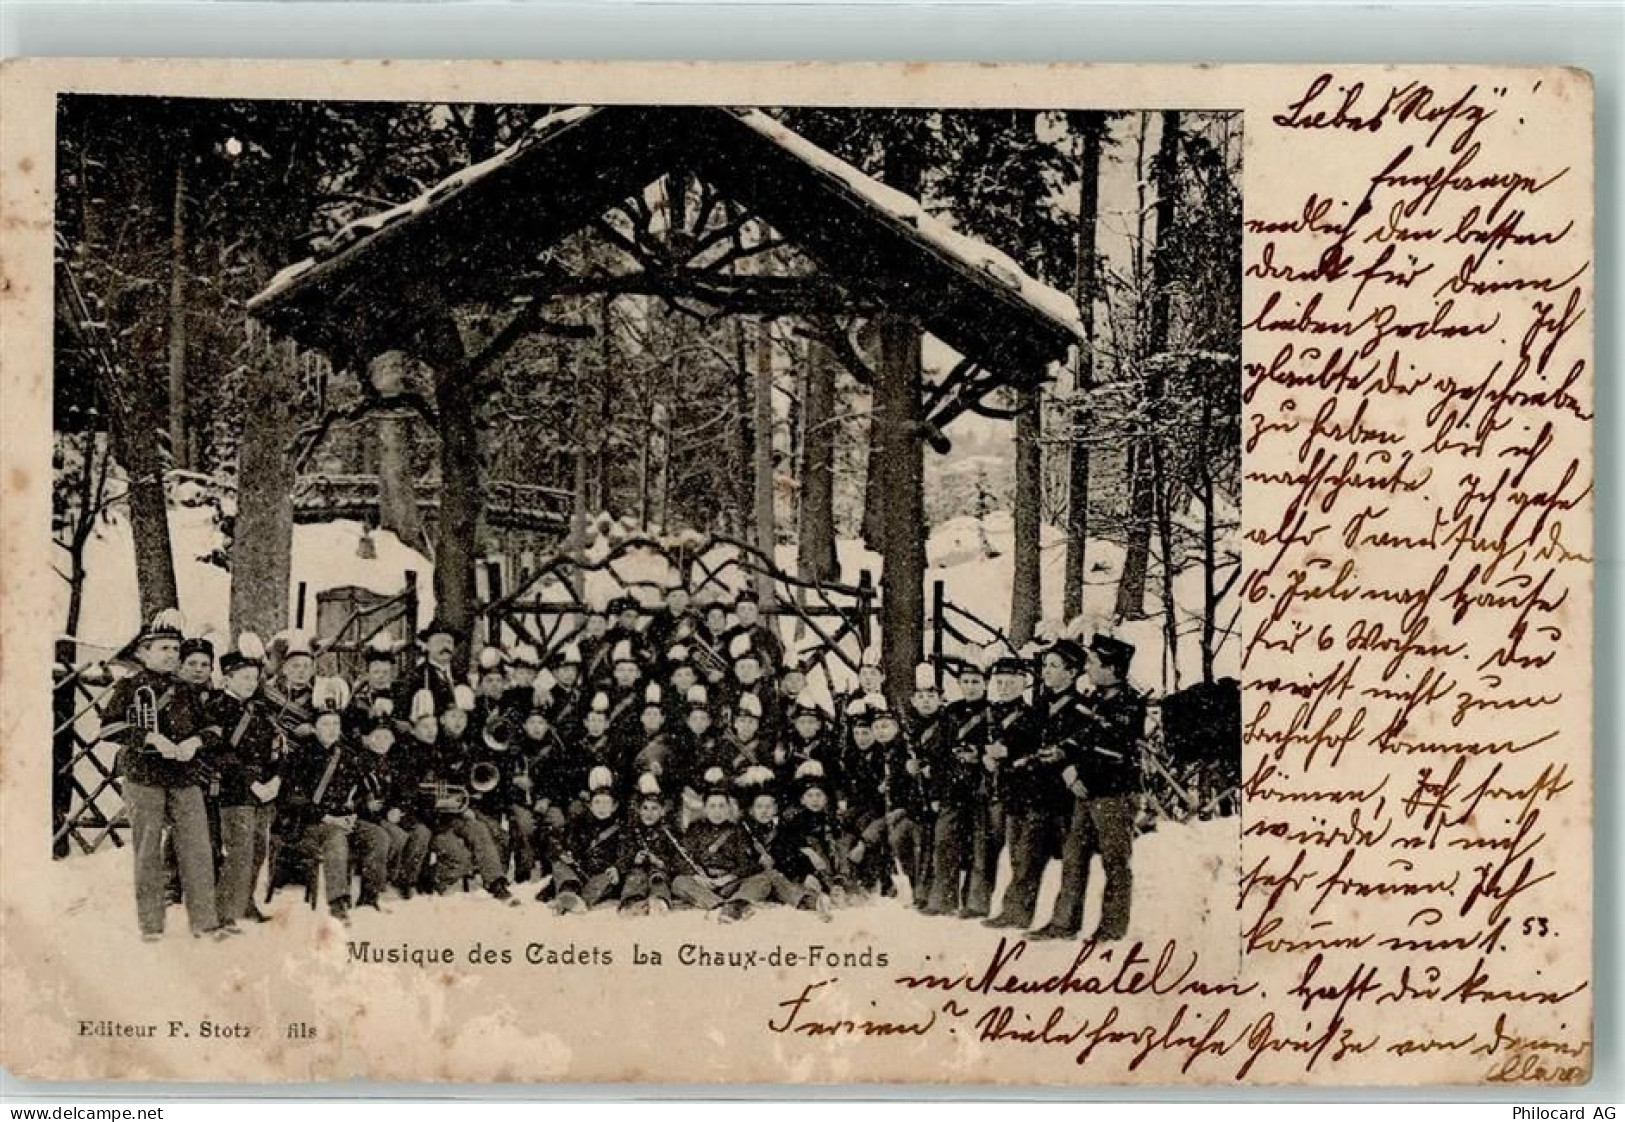 Liebes Rosy!
Empfange
endlich den besten
Dank für Deine
lieben Zeilen. Ich
glaubte dir geschrieben
zu haben, bis ich
nachschaute. Ich gehe
also Samstag, den
16. Juli nach Hause
für 6 Wochen. Du
wirst nicht zum
Bahnhof kommen
können, Ich sonst
würde es mich
sehr freuen. Ich
komme um 1.53.
in Neuchâtel an. Hast Du keine
Ferien? Viele herzliche Grüsse von Deiner
Clara
Musique des Cadets La Chaux-de-Fonds
Editeur F. Stotz fils
www.delcampe.net
raritaeten
Philocard AG